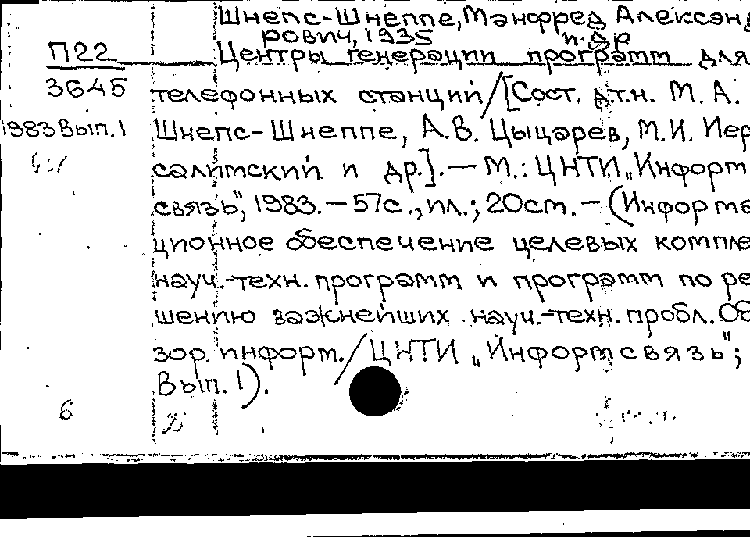 Шнепс-Шнеппе, Манфред Александ
рович, 1935 и др
П22 Центры генерации программ для
3645 телефонных станций/[Сост. д.т.н. М. А.
1983 Вып. 1 Шнепс-Шнеппе, А.В. Цыцарев, М.И. Иер
салимский и др.]. — М.: ЦНТИ „Информ
связь", 1983. — 57с., ил.; 20ст. — (Информа
ционное обеспечение целевых компле
науч.-техн. программ и программ по ре
шению важнейших науч.-техн. пробл. Об
зор. информ./ЦНТИ „Информсвязь";
Вып. 1).
6 2